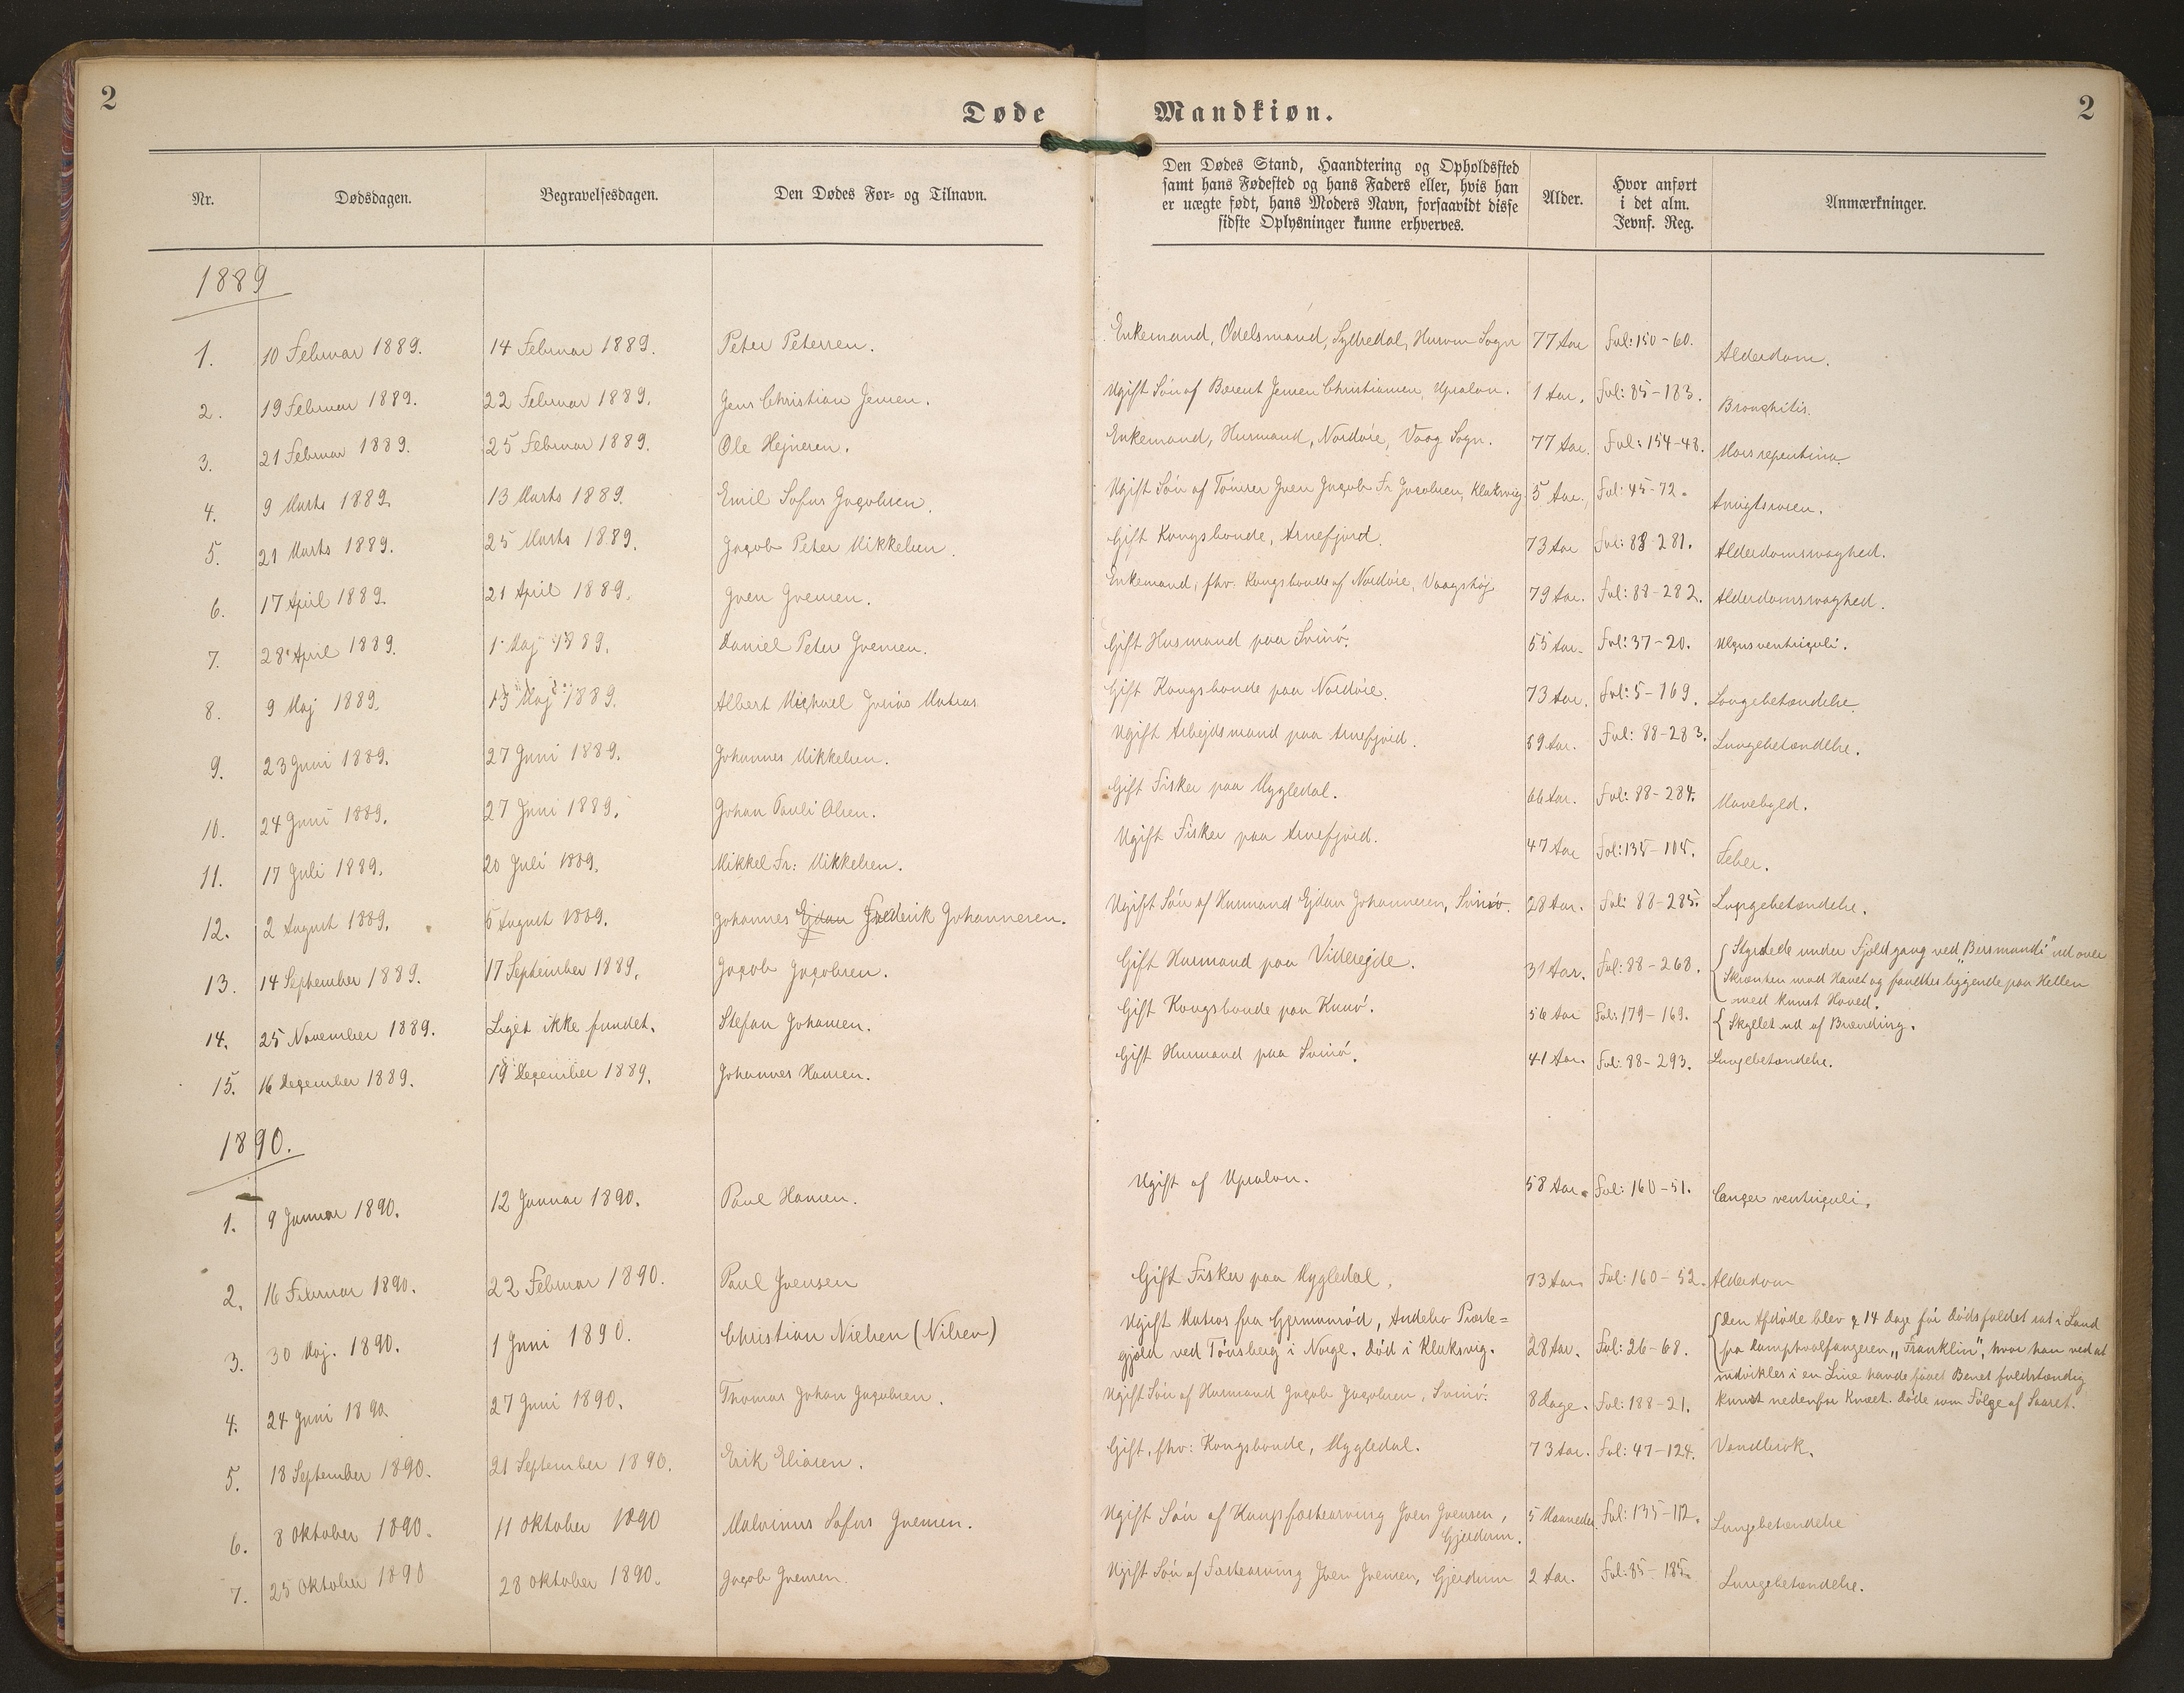 2
Døde Mandkiøn.
2
Nr.
Dødsdagen.
Begravelsesdagen.
Den Dødes For- og Tilnavn.
Den Dødes Stand, Haandtering og Opholdssted
samt hans Fødested og hans Faders eller, hvis han
er uægte født, hans Moders Navn, forsaavidt disse
sidste Oplysninger kunne erhverves.
Alder.
Hvor anført
i det alm.
Jevnf. Reg.
Anmærkninger.
1889
1. 10 Februar 1889. 14 Februar 1889. Peter Petersen. Enkemand, Odelsmand, Sydredal, Husum Sogn 77 Aar Fol: 150-60. Alderdom.
2. 19 Februar 1889. 22 Februar 1889. Jens Christian Jensen. Ugift Søn af Barent Jensen Christiansen, Upsalon. 1 Aar. Fol: 85-183. Bronchitis.
3. 21 Februar 1889. 25 Februar 1889. Ole Hejnesen. Enkemand, Husmand, Nordøie, Vaag Sogn. 77 Aar. Fol: 154-48. Mors repentina.
4. 9 Marts 1889. 13 Marts 1889. Emil Sofus Jacobsen. Ugift Søn af Tømrer Joen Jacob Fr Jacobsen, Klaksvig. 5 Aar. Fol: 45-72.
5. 21 Marts 1889. 25 Marts 1889. Jacob Peter Mikkelsen. Gift Kongsbonde, Arnefjord. 73 Aar Fol: 88-281. Alderdomsvaghed.
6. 17 April 1889. 21 April 1889. Joen Joensen. Enkemand, fhv. Kongsbonde af Nordøie, Vaagshøj 79 Aar. Fol: 88-282. Alderdomsvaghed.
7. 28 April 1889. 1 Maj 1889. Daniel Peter Joensen. Gift Husmand paa Svinø. 55 Aar. Fol: 37-20. Ulcus ventriculi.
8. 9 Maj 1889. 13 Maj 1889. Albert Michael Josias Matras Gift Kongsbonde paa Nordøie. 73 Aar. Fol: 5-169. Lungebetændelse.
9. 23 Juni 1889. 27 Juni 1889. Johannes Mikkelsen. Ugift Arbejdsmand paa Arnefjord. 59 Aar. Fol: 88-283. Lungebetændelse.
10. 24 Juni 1889. 27 Juni 1889. Johan Pauli Olsen. Gift Fisker paa Mygledal. 66 Aar. Fol: 88-284. Mavebyld.
11. 17 Juli 1889. 20 Juli 1889. Mikkel Fr: Mikkelsen. Ugift Fisker paa Arnefjord. 47 Aar Fol: 135-105. Feber.
12. 2 August 1889. 5 August 1889. Johannes Ejdan Frederik Johannesen. Ugift Søn af Husmand Ejdan Johannesen, Svinø. 28 Aar. Fol: 88-285. Lungebetændelse.
13. 14 September 1889. 17 September 1889. Jacob Jacobsen. Gift Husmand paa Viderejde. 31 Aar. Fol: 88-268. Styrtede under Fjeldgang ved "Bismandi" ud over
Skrænten mod Havet og fandtes liggende paa Hellen
med knust Hoved.
14. 25 November 1889. Liget ikke fundet. Stefan Johansen. Gift Kongsbonde paa Kunø. 56 Aar Fol: 179-169. Skyllet ud af Brænding.
15. 16 December 1889. 19 December 1889. Johannes Hansen. Gift Husmand paa Svinø. 41 Aar. Fol: 88-293. Lungebetændelse.
1890.
1. 9 Januar 1890. 12 Januar 1890. Paul Hansen. Ugift af Upsalon. 58 Aar. Fol: 160-51. Cancer ventriculi.
2. 16 Februar 1890. 22 Februar 1890. Paul Joensen Gift Fisker paa Mygledal. 73 Aar Fol: 160-52. Alderdom
3. 30 Maj. 1890. 1 Juni 1890. Christian Nielsen (Nilsen) Ugift Matros fra Gjermunrød, Andebo Præste=
gjeld ved Tønsberg i Norge. Død i Klaksvig. 28 Aar. Fol: 26-68. Den Afdøde blev c. 14 Dage før Dødsfaldet sat i Land
fra Damphvalfangeren "Franklin", hvor han ved at
indvikles i en Line havde faaet Benet fuldstændig
knust nedenfor Knæet. Døde som Følge af Saaret.
4. 24 Juni 1890. 27 Juni 1890. Thomas Johan Jacobsen. Ugift Søn af Husmand Jacob Jacobsen, Svinø. 8 Dage. Fol: 188-21.
5. 18 September 1890. 21 September 1890. Erik Eliasen. Gift, fhv: Kongsbonde, Mygledal. 73 Aar. Fol: 47-124. Vandbrok.
6. 8 Oktober 1890. 11 Oktober 1890 Malvinus Sofus Joensen. Ugift Søn af Kongsfæstearving Joen Joensen,
Gjerdum. 5 Maaneder. Fol: 135-112. Lungebetændelse
7. 25 Oktober 1890 28 Oktober 1890. Jacob Joensen. Ugift Søn af Fæstearving Joen Joensen, Gjerdum 2 Aar. Fol: 85-185. Lungebetændelse.